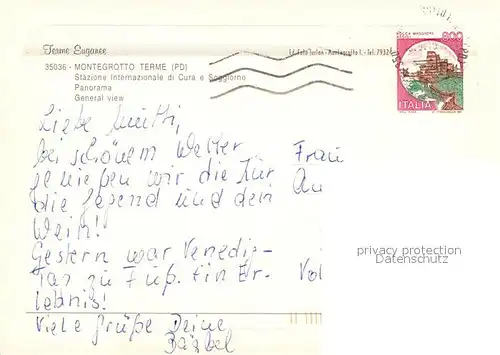 Terme Euganee
35036 - MONTEGROTTO TERME (PD)
Stazione Internazionale di Cura e Soggiorno
Panorama
General view
ROCCA MAGGIORE
800
ITALIA
Liebe Mutti,
bei schönem Wetter
genießen wir die Kur
die Gegend und den
Wein!
Gestern war Venedig-
Tag zu Fuß. Ein Er-
lebnis!
Viele Grüße Deine
Bärbel
Frau
An
Vol
privacy protection
Datenschutz